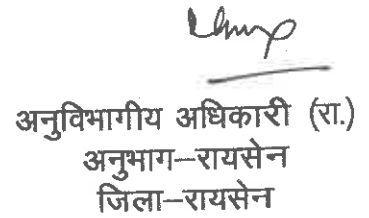 अनुविभागीय अधिकारी (रा.)
अनुभाग–रायसेन
जिला–रायसेन